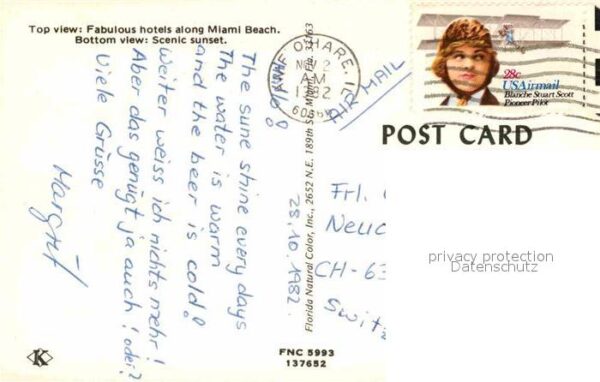 Top view: Fabulous hotels along Miami Beach.
Bottom view: Scenic sunset.
Hallo!
The sune shine every days
The water is warm
and the beer is cold!
Weiter weiss ich nichts mehr!
Aber das genügt ja auch! oder?
Viele Grüsse
Margrit
28.10.1982
Florida Natural Color, Inc., 2652 N.E. 189th St., Miami, Fla. 33163
FNC 5993
137652
K
O'HARE, IL
NOV 2
AM
1982
AIR MAIL
28c
USAirmail
Blanche Stuart Scott
Pioneer Pilot
POST CARD
Frl.
Neuc
CH-63
Switz
privacy protection
Datenschutz